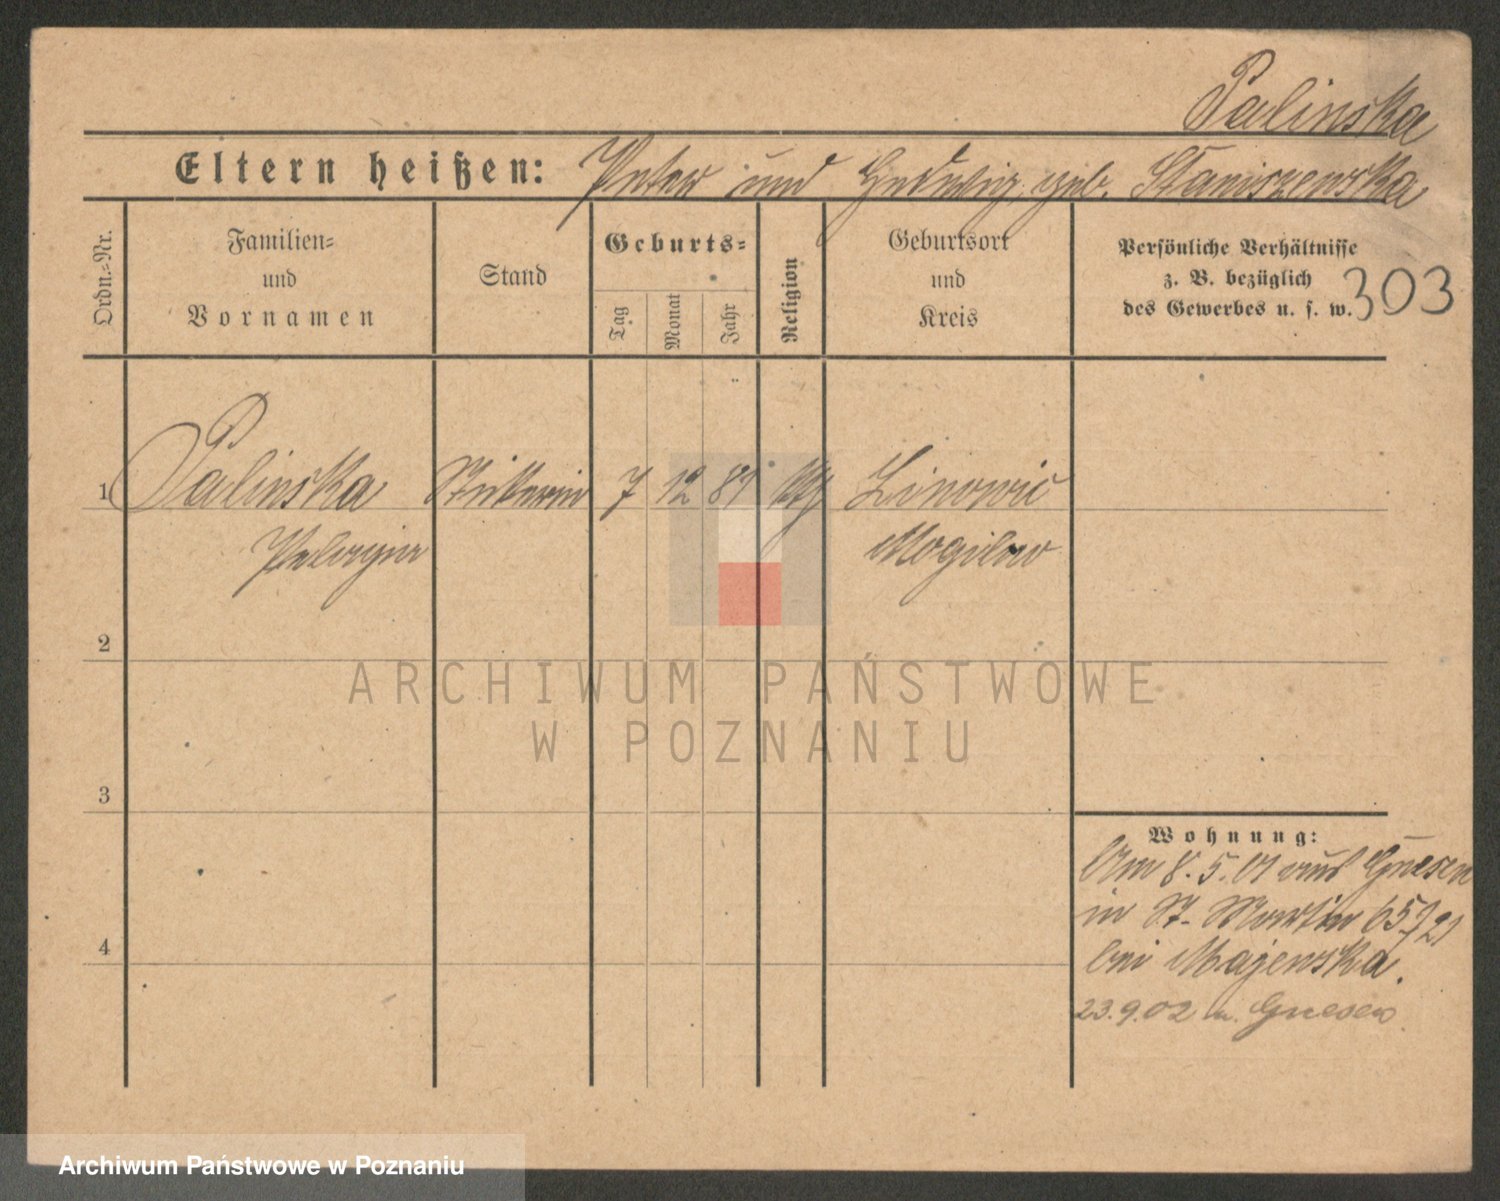 Palinska
Eltern heißen: Peter und Hedwig, geb. Staniszewska
Ordn.-Nr.
Familien-
und
Vornamen
Stand
Geburts-
Tag
Monat
Jahr
Religion
Geburtsort
und
Kreis
Persönliche Verhältnisse
z. B. bezüglich
des Gewerbes u. s. w.
303
1 Palinska Stickerin 7 12 81 ktḥ Linowic
Pelagia Mogilno
2
3
4
Wohnung:
Am 8.5.01 aus Gnesen
in St. Martin 65/21
bei Majewska.
23.9.02 n. Gnesen
ARCHIWUM PAŃSTWOWE
W POZNANIU
Archiwum Państwowe w Poznaniu